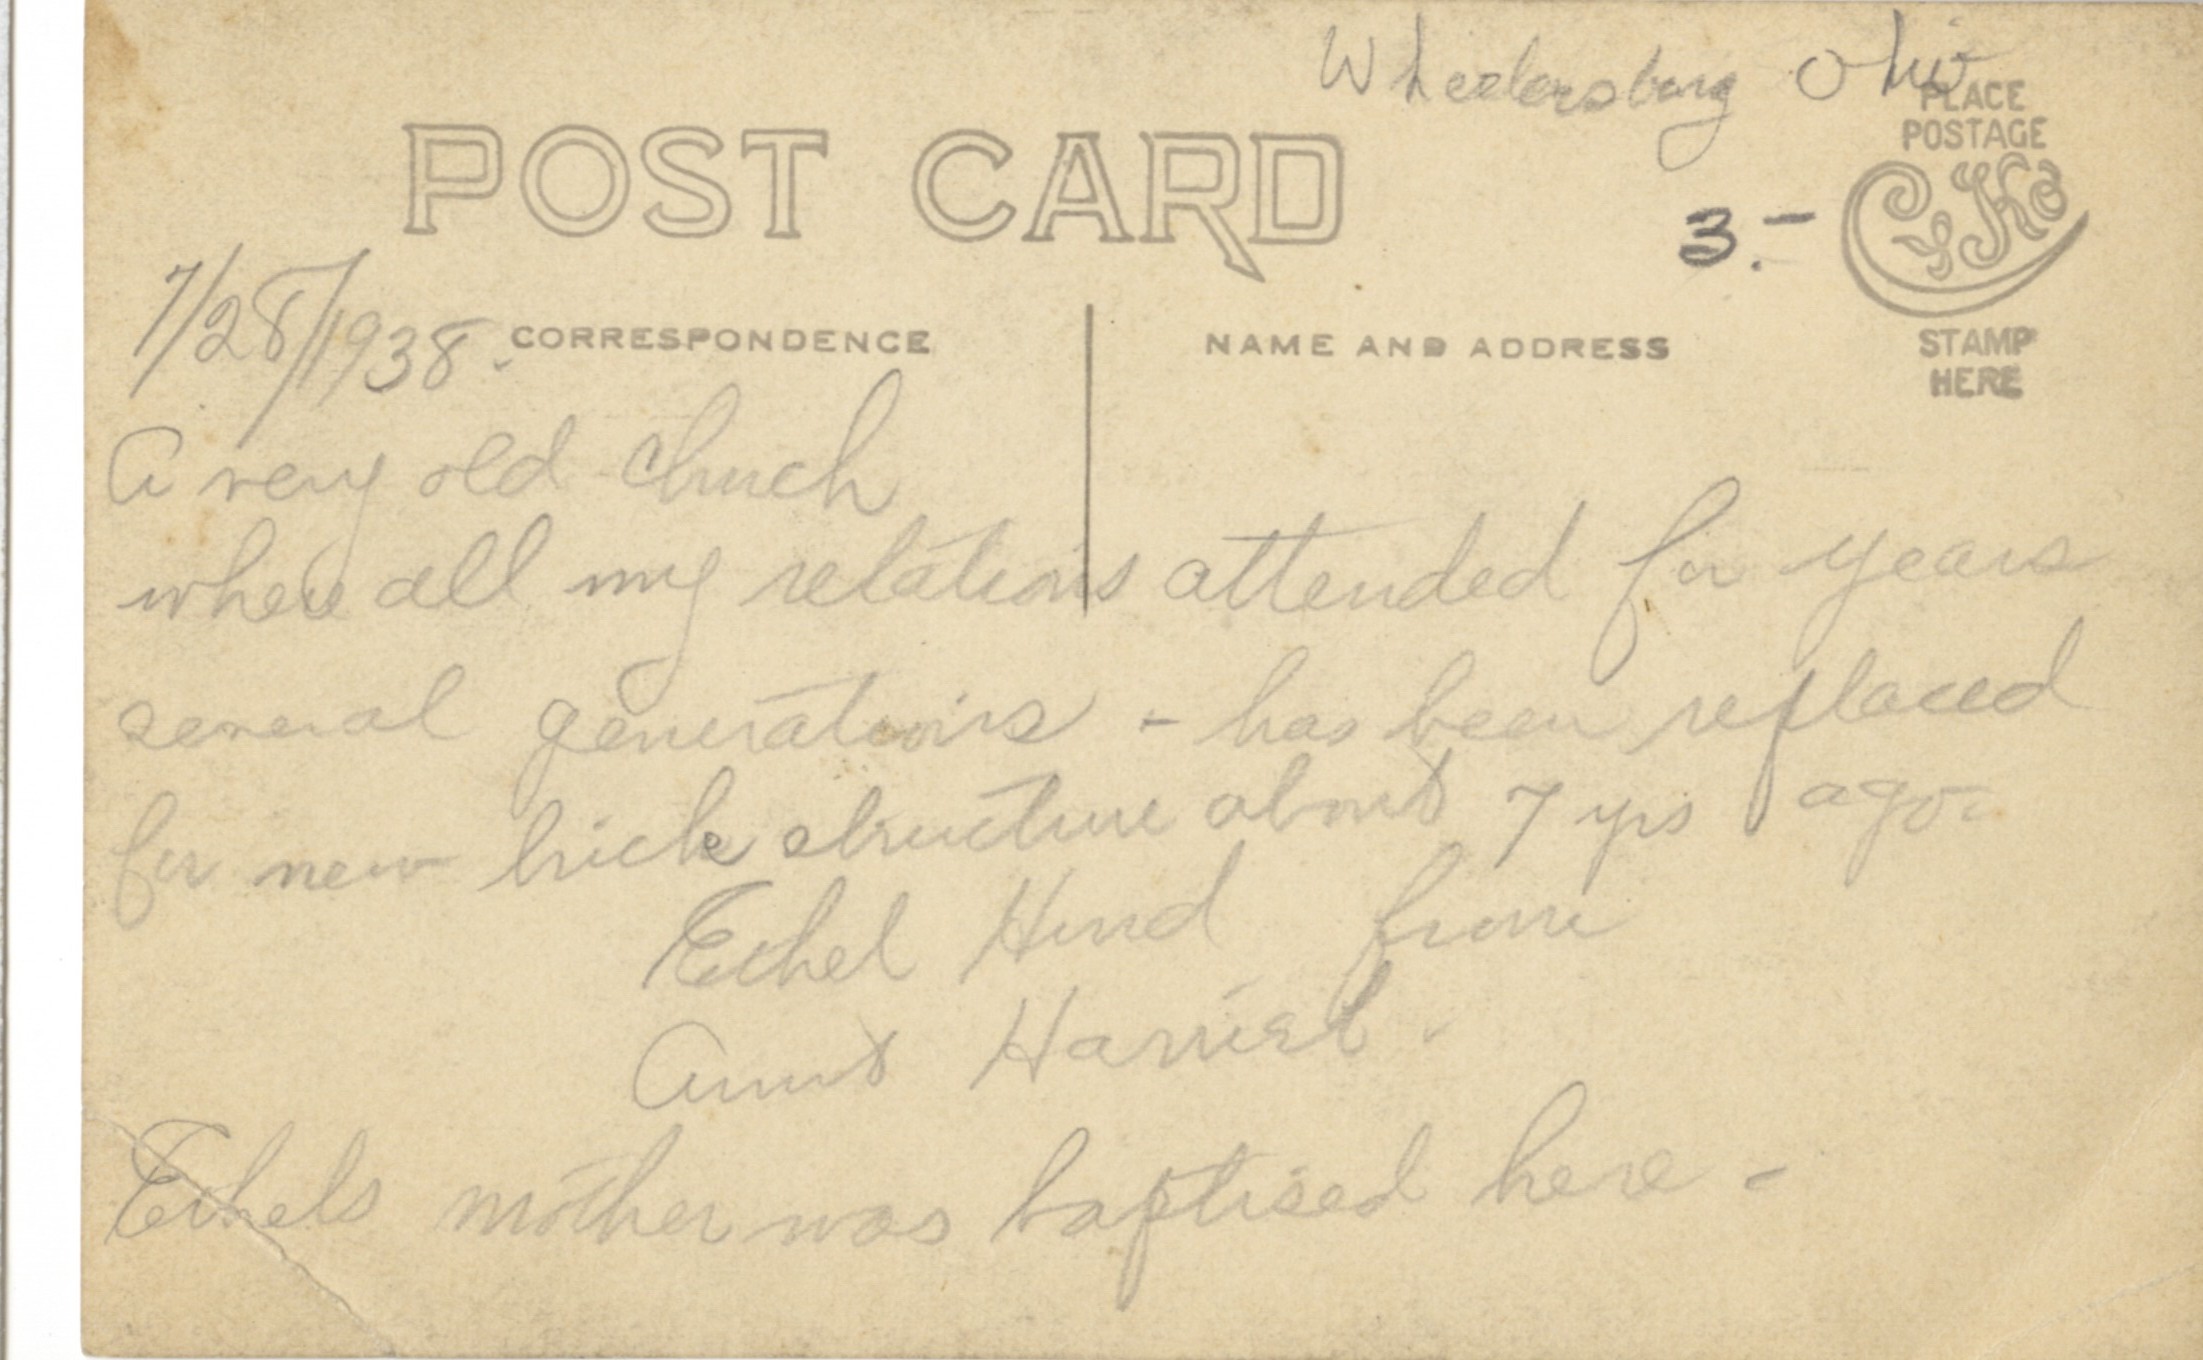 Wheelersburg Ohio
PLACE
POSTAGE
CYKO
STAMP
HERE
POST CARD
3.-
7/28/1938.
CORRESPONDENCE
NAME AND ADDRESS
A very old church
where all my relations attended for years
several generations - has been replaced
for new brick structure about 7 yrs ago.
Ethel Hurd from
Aunt Harriet.
Ethels mother was baptised here -